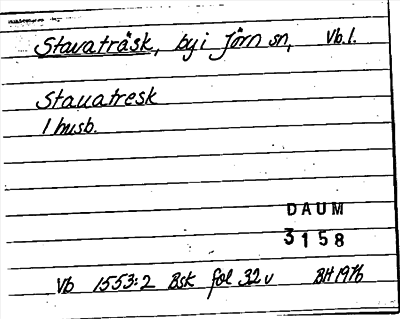 Stavaträsk, by i Jörn sn, Vb.l.
Stauatresk
1 husb.
DAUM
3158
Vb 1553:2 Bsk fol 32v BH 1976